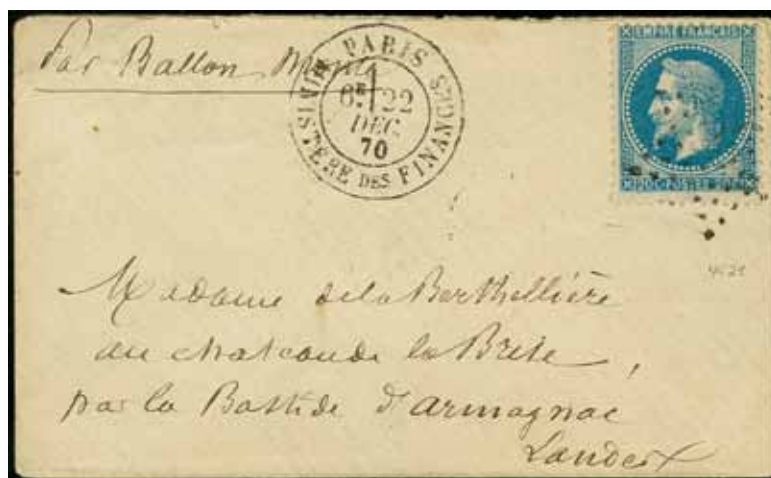 Par Ballon Monté
PARIS
MINISTÈRE DES FINANCES
6E 22
DEC.
70
EMPIRE FRANÇAIS
20 C POSTES 20 C
Madame de la Berthellière
au chateau de la Brise,
par la Bastide d'armagnac
Landes